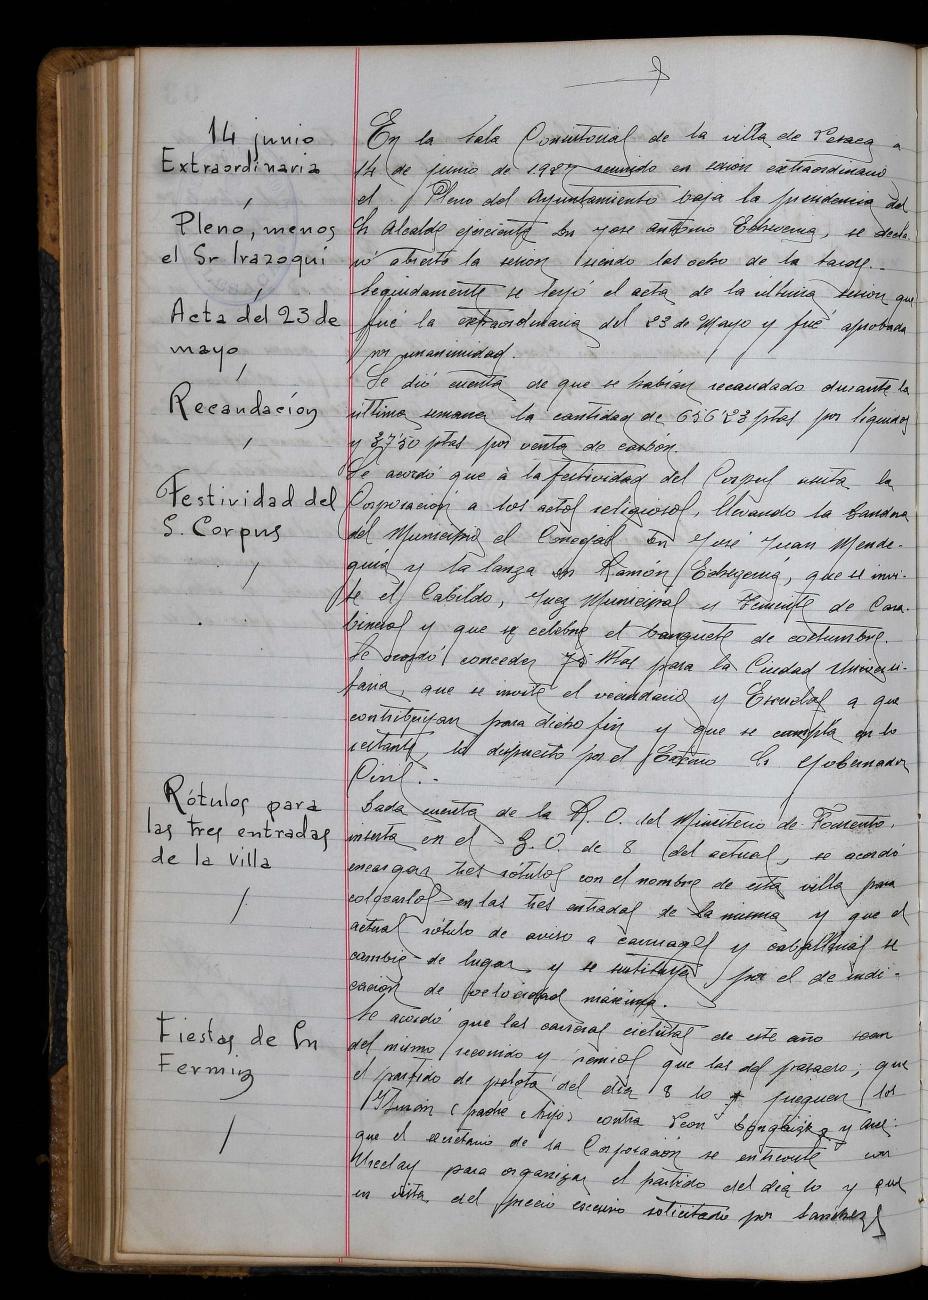 14 junio
Extraordinaria
Pleno, menos
el Sr Irazoqui
Acta del 23 de
mayo
Recaudación
Festividad del
S. Corpus
Rótulos para
las tres entradas
de la villa
Fiestas de Sn
Fermin
En la Sala Consistorial de la villa de Vera a
14 de junio de 1927 reunido en sesion extraordinaria
el Pleno del Ayuntamiento baja la presidencia del
Sr Alcalde ejerciente Dn Jose Antonio Echeverria, se decla-
ró abierta la sesion siendo las ocho de la tarde.-
Seguidamente se leyó el acta de la ultima sesion que
fué la extraordinaria del 23 de Mayo y fué aprobada
por unanimidad.
Se dió cuenta de que se habian recaudado durante la
ultima semana la cantidad de 656'23 ptas por liquidos
y 37'50 ptas por venta de carbón.
Se acordó que á la festividad del Corpus asista la
Corporación a los actos religiosos, llevando la bandera
del Municipio el Concejal Dn José Juan Mende-
guia y la lanza Dn Ramón Echegaray, que se invi-
te el Cabildo, Juez Municipal y Teniente de Cara-
bineros y que se celebre el banquete de costumbre.
Se acordó conceder 75 Ptas para la Ciudad Universi-
taria, que se invite el vecindario y Escuelas a que
contribuyan para dicho fin y que se cumpla en lo
restante, lo dispuesto por el Excmo Sr Gobernador
Civil.-
Dada cuenta de la R. O. del Ministerio de Fomento,
inserta en el B. O. de 8 del actual, se acordó
encargar tres rótulos con el nombre de esta villa para
colocarlos en las tres entradas de la misma y que el
actual rótulo de aviso a carruages y caballerias se
cambie de lugar y se sustituya por el de indi-
cación de velocidad máxima.
Se acordó que las carreras ciclistas de este año sean
del mismo recorrido y premios que las del pasado; que
el partido de pelota del dia 8 lo jueguen los
(padre e hijo) contra Leon y
que el secretario de la Corporación se entreviste con
Urcelay para organizar el partido del dia 10 y que
en vista del precio excesivo solicitado por Sanchez